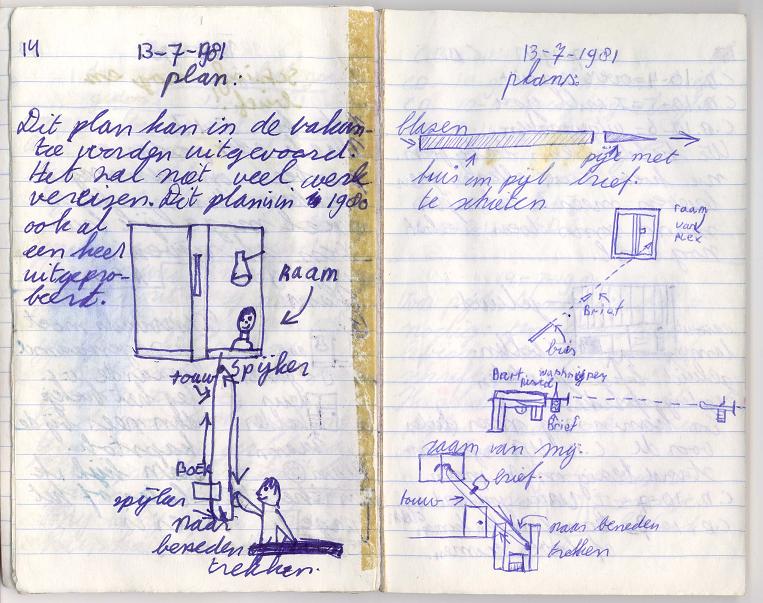 14
13-7-1981
plan:
Dit plan kan in de vakan-
tie worden uitgevoerd.
Het zal niet veel werk
vereizen. Dit plan is in 1980
ook al
een keer
uitgepro-
beerd.
Raam
spijker
touw
Boek
spijker
naar
beneden
trekken.
13-7-1981
plans:
blazen
pijl met
buis om pijl brief.
te schieten
raam
van
Alex
Brief
buis
Bart
Brief
raam van mij.
brief.
touw
naar beneden
trekken